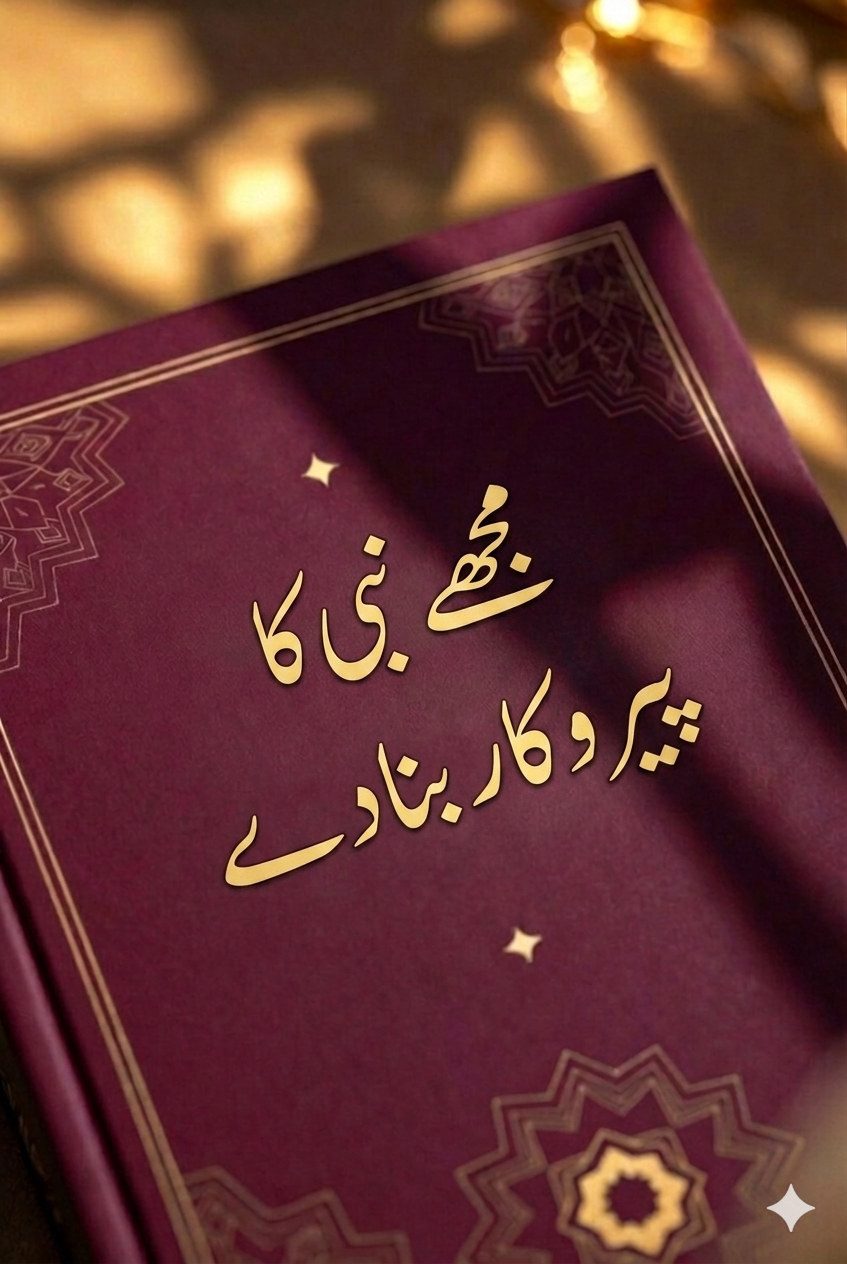 مجھے نبی کا
پیروکار بنا دے